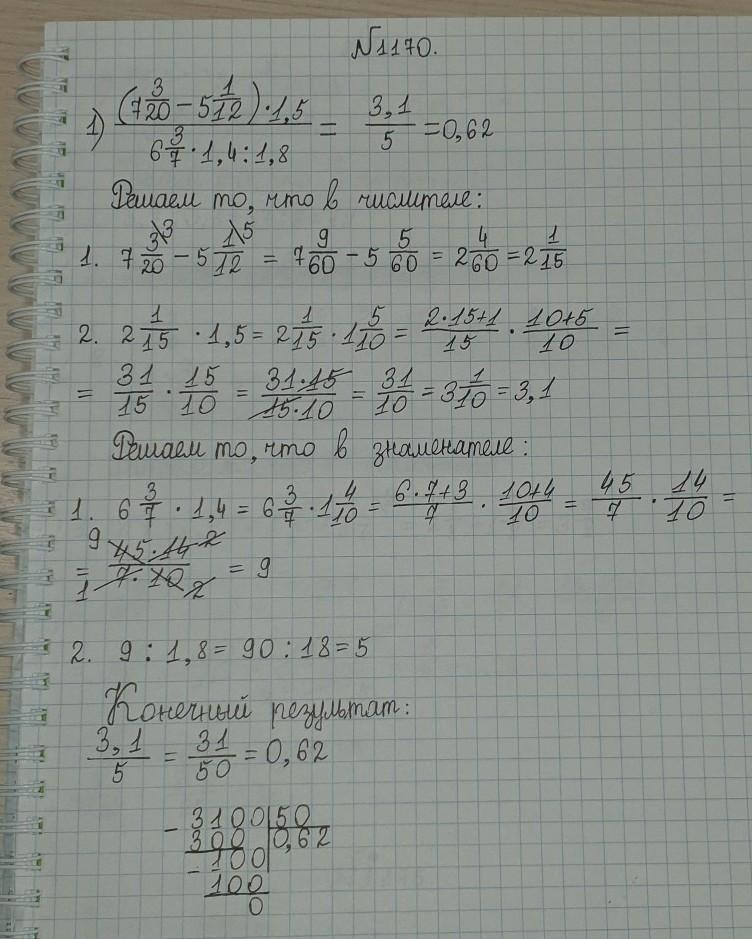 №1170.
1) ((7 3/20 − 5 1/12) · 1,5) / (6 3/7 · 1,4 : 1,8) = 3,1/5 = 0,62
Решаем то, что в числителе:
1. 7 3\3/20 − 5 1\5/12 = 7 9/60 − 5 5/60 = 2 4/60 = 2 1/15
2. 2 1/15 · 1,5 = 2 1/15 · 1 5/10 = (2·15+1)/15 · (10+5)/10 =
= 31/15 · 15/10 = (31·15)/(15·10) = 31/10 = 3 1/10 = 3,1
Решаем то, что в знаменателе:
1. 6 3/7 · 1,4 = 6 3/7 · 1 4/10 = (6·7+3)/7 · (10+4)/10 = 45/7 · 14/10 =
= 9 45·14 2 / 1 7·10 2 = 9
2. 9 : 1,8 = 90 : 18 = 5
Конечный результат:
3,1/5 = 31/50 = 0,62
− 3100 | 50
300 | 0,62
− 100
100
0